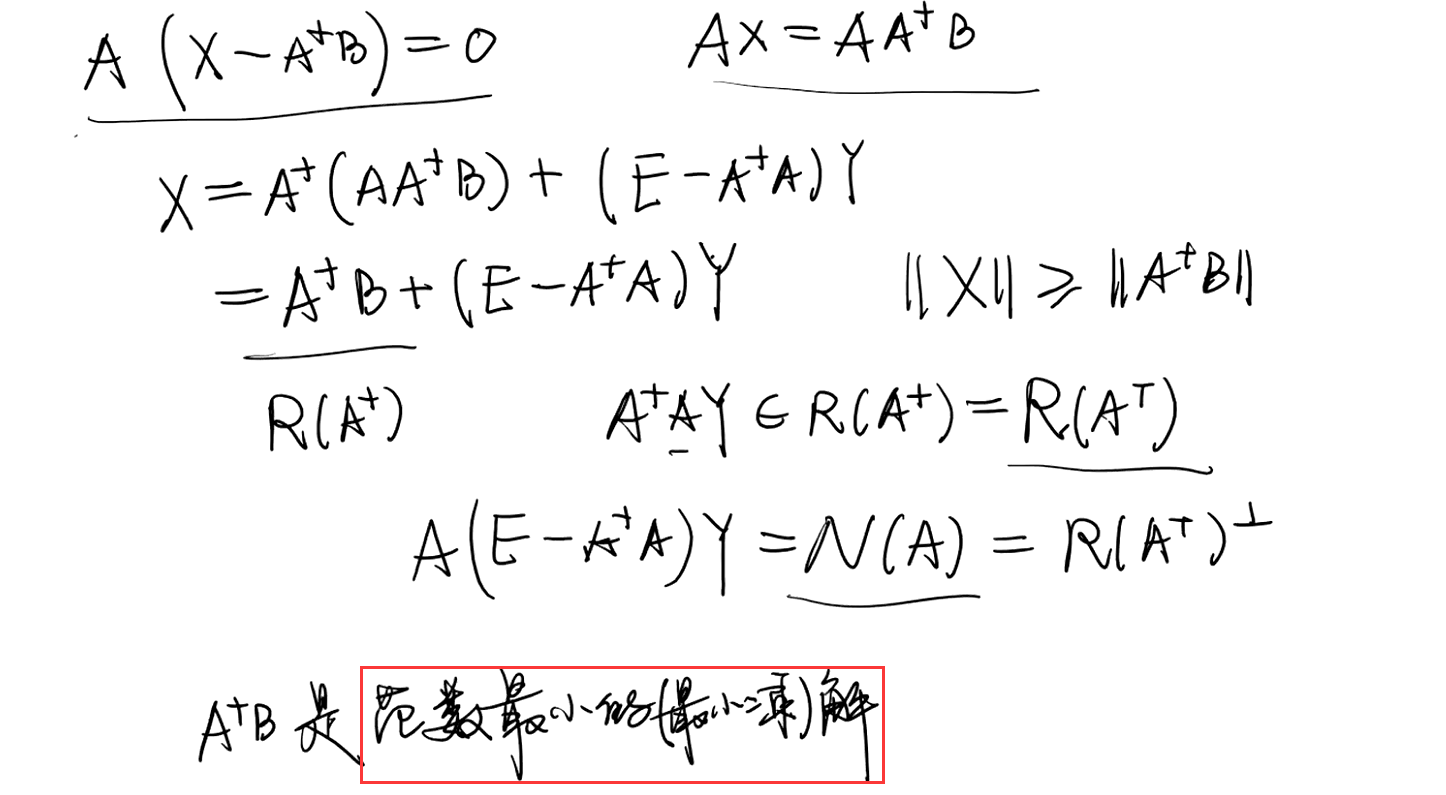 A(X-A⁺B)=0 AX=AA⁺B
X=A⁺(AA⁺B)+(E-A⁺A)Y
=A⁺B+(E-A⁺A)Y ||X||≥||A⁺B||
R(A⁺) A⁺AY∈R(A⁺)=R(Aᵀ)
A(E-A⁺A)Y=N(A)=R(Aᵀ)⊥
A⁺B是范数最小的(最小二乘)解